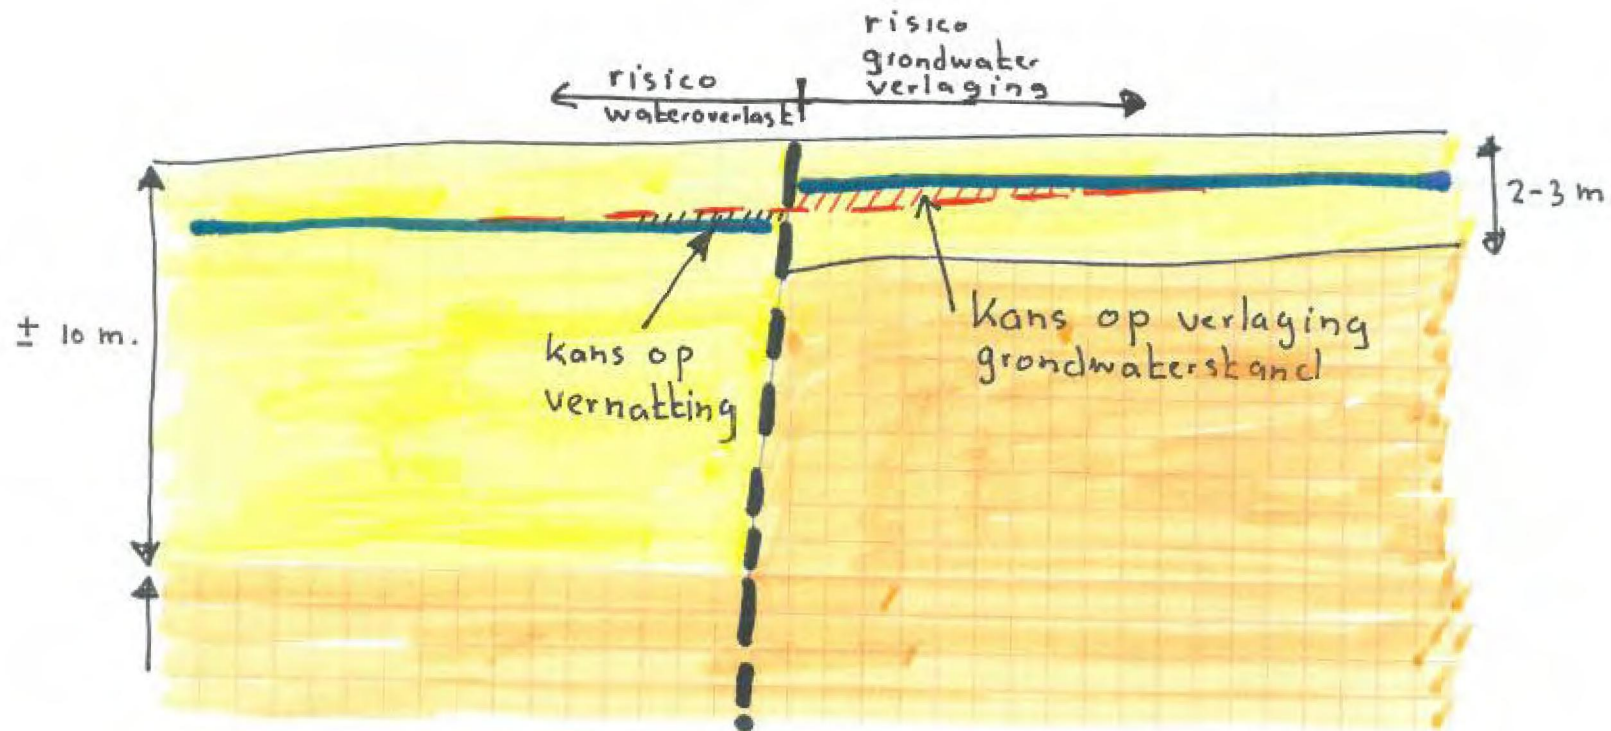 risico
grondwater
verlaging
risico
wateroverlast
2-3 m
± 10 m.
kans op
vernatting
Kans op verlaging
grondwaterstand